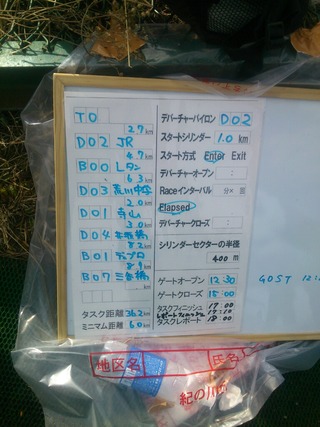 TO
2.7km
D02 JR
4.7km
B00 Lタン
6.3km
D03
2.0km
D01 寺山
3.0km
D04
8.2km
B01 デプロ
8.9km
B07
タスク距離 36.2km
ミニマム距離 6.0km
デパーチャーパイロン D02
スタートシリンダー 1.0km
スタート方式 Enter Exit
デパーチャーオープン :
Raceインターバル 分× 回
Elapsed
デパーチャークローズ :
シリンダーセクターの半径
400m
ゲートオープン 12:30
ゲートクローズ 15:00
タスクフィニッシュ 17:00
17:10
タスクレポート 18:00
GOST 12:
地区名
氏名
紀の川市